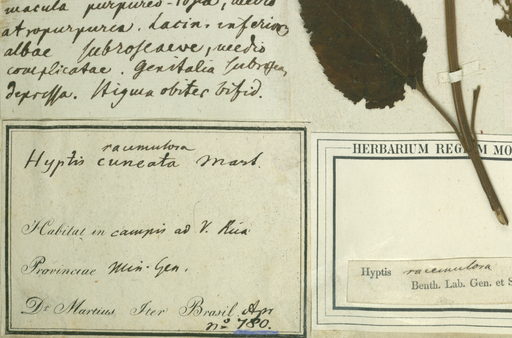 macula purpureo-rosa, medio
atropurpurea. Lacin. inferior
albae subroseaeve, medio
complicatae. Genitalia subrosea,
depressa. Stigma obiter bifid.
racemulosa
Hyptis cuneata Mart.
Habitat in campis ad V. Rica
Provinciae Min. Gen.
Dr Martius Iter Brasil. Apr
no 780.
HERBARIUM REGIUM MO
Hyptis racemulosa
Benth. Lab. Gen. et S